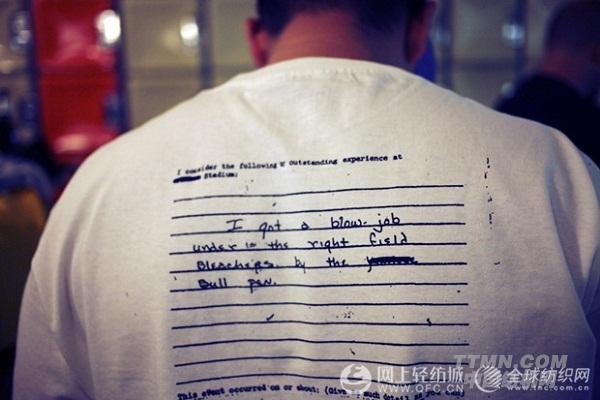 I consider the following Outstanding experience at
Stadium:
I got a blow-job
under in the right field
Bleachers by the
Bull pen.
This event occurred on or about: (Give as much detail as you can)
TTMN.COM
网上轻纺城 全球纺织网
WWW.QFC.CN www.tnc.com.cn